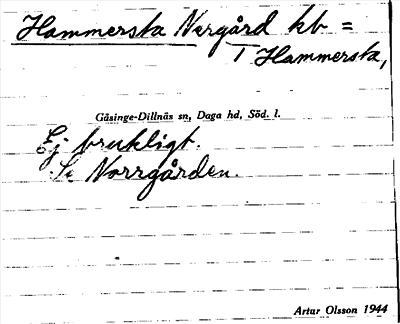 Hammersta Nergård kb =
T Hammersta,
Gåsinge-Dillnäs sn, Daga hd, Söd. l.
Ej brukligt.
Se Norrgården.
Artur Olsson 1944